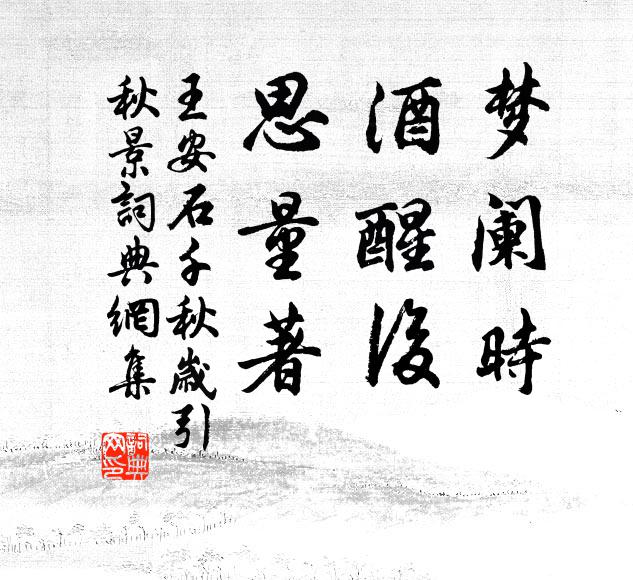 梦阑時
酒醒後
思量著
王安石千秋歲引
秋景詞典網集
詞典网印